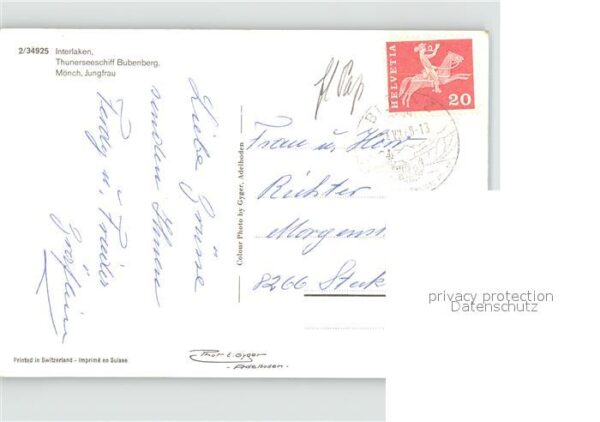 2/34925 Interlaken,
Thunerseeschiff Bubenberg.
Mönch, Jungfrau
Liebe Grüsse
senden Ihnen
Ferdy u. Friedes
Gräflein
Colour Photo by Gyger, Adelboden
HELVETIA
20
Frau u. Herr
Richter
Morgenst
8266 Steck
privacy protection
Datenschutz
Phot. E. Gyger
- Adelboden -
Printed in Switzerland - Imprimé en Suisse